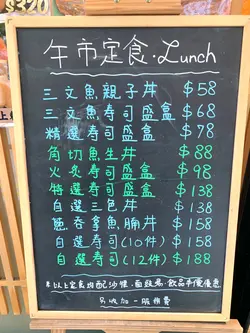 午市定食·Lunch
三文魚親子丼 $58
三文魚壽司盛盒 $68
精選壽司盛盒 $78
角切魚生丼 $88
火炙壽司盛盒 $98
特選壽司盛盒 $138
自選三色丼 $138
葱吞拿魚腩丼 $158
自選壽司(10件) $158
自選壽司(12件) $188
*以上定食均配沙律、麵豉湯、飲品半價優惠
另收加一服務費